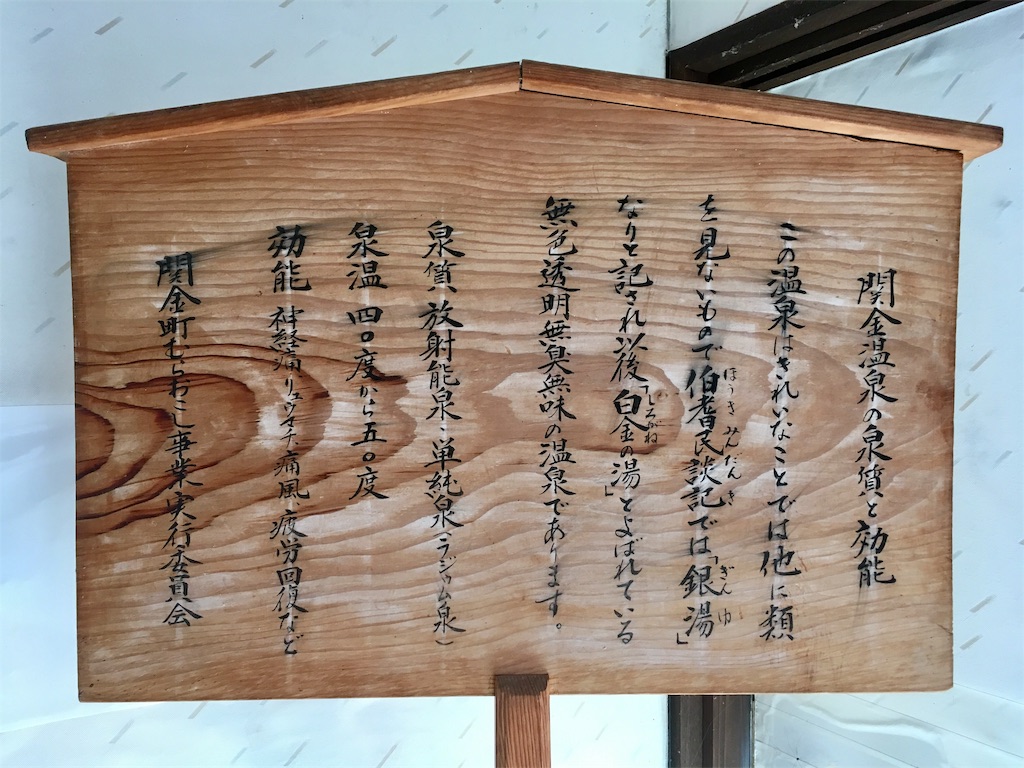 関金温泉の泉質と効能
この温泉はきれいなことでは他に類
を見ないもので伯耆民談記では「銀湯」
ほうきみんだんき
ぎんゆ
なりと記され以後「白金の湯」とよばれている
しろがね
無色透明無臭無味の温泉であります。
泉質 放射能泉・単純泉(ラジウム泉)
泉温 四〇度から五〇度
効能 神経痛リュウマチ、痛風、疲労回復など
関金町むらおこし事業実行委員会